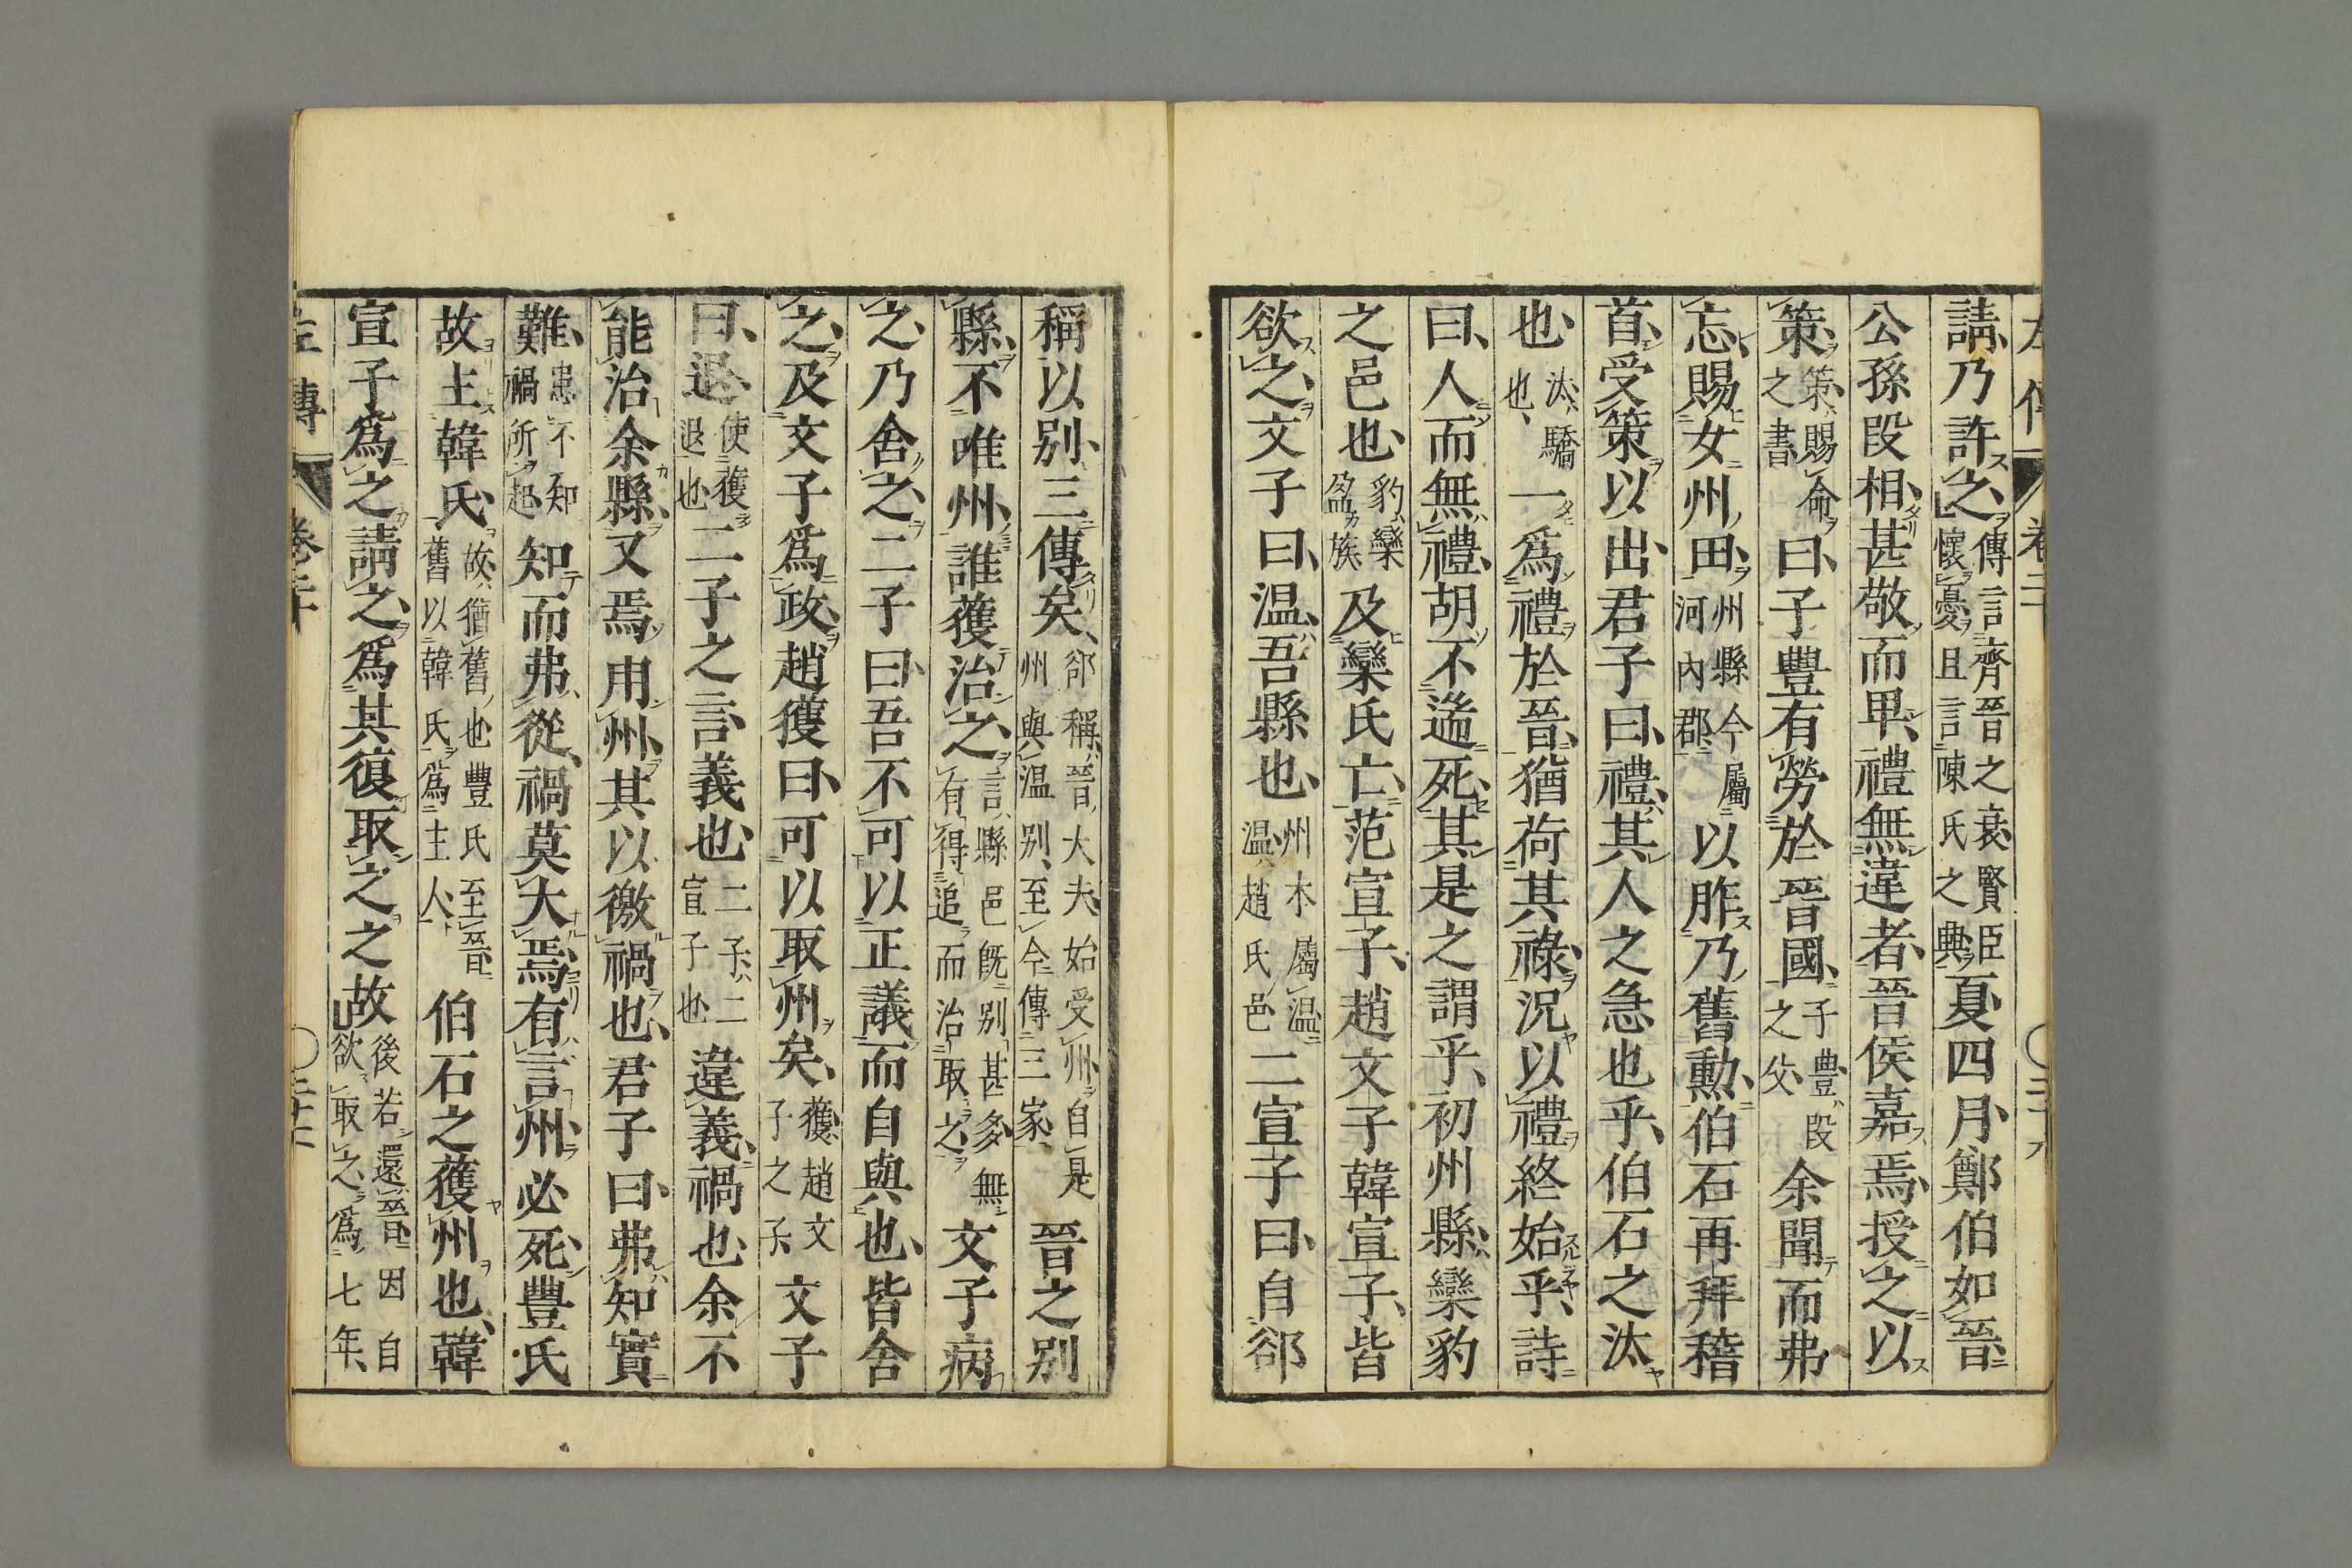 請乃許之傳言齊晉之衰賢臣懷憂且言陳氏之興夏四月鄭伯如晉
公孫段相甚敬而卑禮無違者晉侯嘉焉授之以
策策賜命之書曰子豐有勞於晉國子豐段之父余聞而弗
忘賜女州田州縣今屬河內郡以胙乃舊勳伯石再拜稽
首受策以出君子曰禮其人之急也乎伯石之汰
也汰驕也一爲禮於晉猶荷其祿況以禮終始乎詩
曰人而無禮胡不遄死其是之謂乎初州縣欒豹
之邑也豹欒盈族及欒氏亡范宣子趙文子韓宣子皆
欲之文子曰温吾縣也州本屬温温趙氏邑二宣子曰自郤
稱以别三傳矣郤稱晉大夫始受州自是州與温别至今傳三家晉之别
縣不唯州誰獲治之言縣邑既别甚多無有得追而治取之文子病
之乃舍之二子曰吾不可以正議而自與也皆舍
之及文子爲政趙獲曰可以取州矣獲趙文子之子文子
曰退使獲退也二子之言義也二子二宣子也違義禍也余不
能治余縣又焉用州其以徼禍也君子曰弗知實
難患不知禍所起知而弗從禍莫大焉有言州必死豐氏
故主韓氏故猶舊也豐氏至晉舊以韓氏爲主人伯石之獲州也韓
宣子爲之請之爲其復取之之故後若還晉因自欲取之爲七年
左傳 卷二十